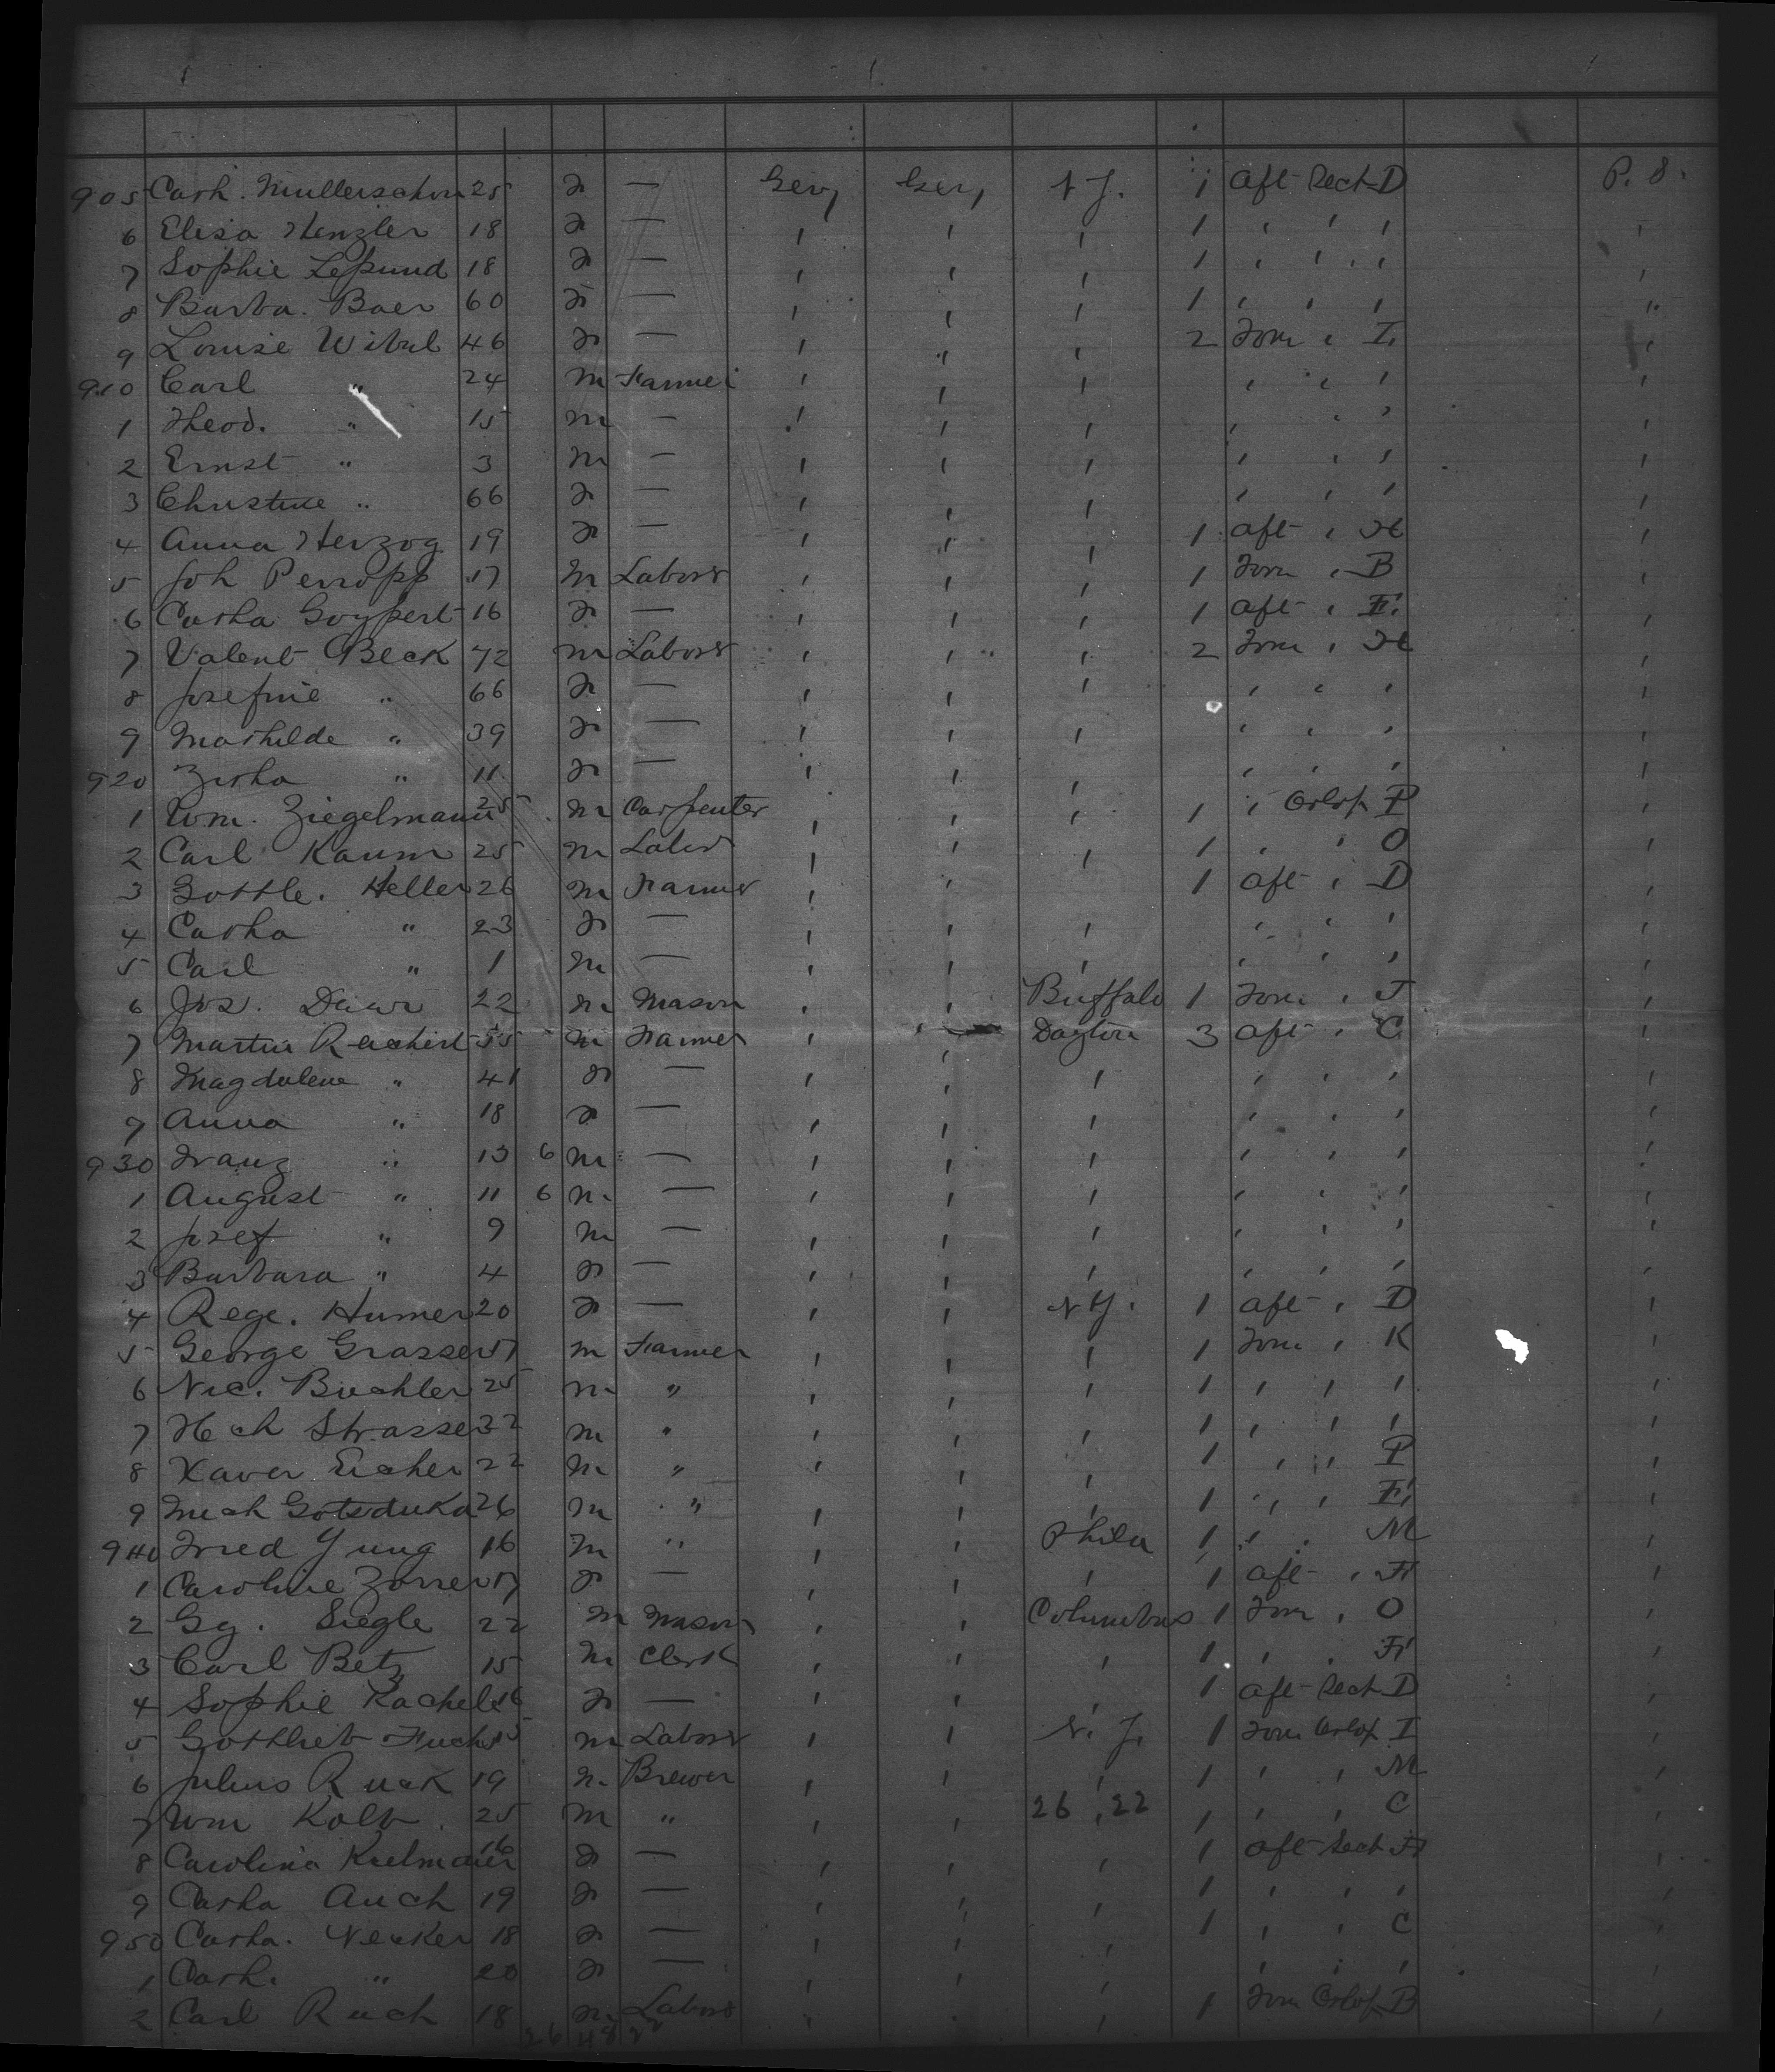 905 Cath. Mullerschon 25 F — Gery Gery N.Y. 1 Aft Sect D P. 8.
6 Elisa Henzler 18 F — , , , 1 , , , ,
7 Sophie Lepund 18 F — , , , 1 , , , ,
8 Barba. Baer 60 F — , , , 1 , , , "
9 Louise Wibul 46 F — , " , 2 Forw , I, ,
910 Carl " 24 m Farmer , , , , , , ,
1 Theod. " 15 m — , , , , , , ,
2 Ernst " 3 m — , , , , , , ,
3 Christine " 66 F — , , , , , , ,
4 Anna Herzog 19 F — , , , 1 Aft , H ,
5 Joh Perropp 17 m Labor , , , 1 Forw , B ,
6 Catha Goypert 16 F — , , , 1 Aft , E, ,
7 Valent Beck 72 m Labor , , , 2 Forw , H ,
8 Josefine " 66 F — , , , , , , ,
9 Mathilde " 39 F — , , , , , , ,
920 Zitha " 11 F — , , , , , , ,
1 Wm. Ziegelmann 25 m Carpenter , , , 1 , Orlop P ,
2 Carl Kaum 25 m Labor , , , 1 , , O ,
3 Gottle. Heller 26 m Farmer , , 1 Aft , D ,
4 Catha " 23 F — , , , , , , ,
5 Carl " 1 m — , , , , , , ,
6 Jos. 22 m Mason , , Buffalo 1 Forw , J ,
7 Martin Reichert 55 m Farmer , , Dayton 3 Aft , C ,
8 Magdalena " 41 F — , , , , , , ,
9 Anna " 18 F — , , , , , , ,
930 Franz " 13 6 m — , , , , , , ,
1 August " 11 6 m — , , , , , , ,
2 Josef " 9 m — , , , , , , ,
3 Barbara " 4 F — , , , , , , ,
4 Rege. Humer 20 F — , , N.Y. 1 Aft , D ,
5 George Grasser 57 m Farmer , , , 1 Forw , K ,
6 Nic. Buchler 25 m " , , , 1 , , , ,
7 Hch Strasser 22 m " , , , 1 , , , ,
8 Xaver Eicher 22 m " , , , 1 , , P ,
9 Mich Gotsduka 26 m " , , , 1 , , F ,
940 Fried Yung 16 m " , , Phila 1 , , M ,
1 Caroline Zorrer 17 F — , , , 1 Aft , F ,
2 Gg. Siegle 22 m Mason , , Columbus 1 Forw , O ,
3 Carl Betz 15 m Clerk , , , 1 , , F ,
4 Sophie Kachele 16 F — , , , 1 Aft Sect D ,
5 Gottlieb Fuchs 15 m Labor , , N.Y. 1 Forw Orlop I ,
6 Julius Ruck 19 m Brewer , , , 1 , , M ,
7 Wm Kolb. 25 m " , , 26 , 22 1 , , C ,
8 Carolina Kielmaier 16 F — , , , 1 Aft Sect F ,
9 Catha Auch 19 F — , , , 1 , , , ,
950 Catha. Necker 18 F — , , , 1 , , C ,
1 Cath. " 20 F — , , , , , , ,
2 Carl Ruch 18 m Labor , , , 1 Forw Orlop B ,
26 48 22